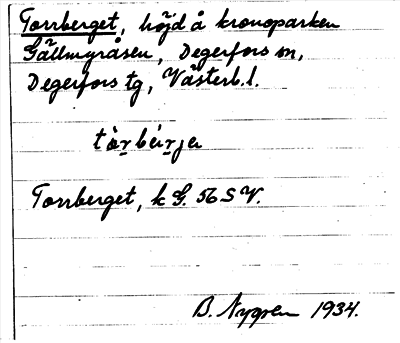 Torrberget, höjd å kronoparken
Gållmyråsen, Degerfors sn,
Degerfors tg, Västerb. l.
Torrberget, k G. 56 SV.
B. Nygren 1934.